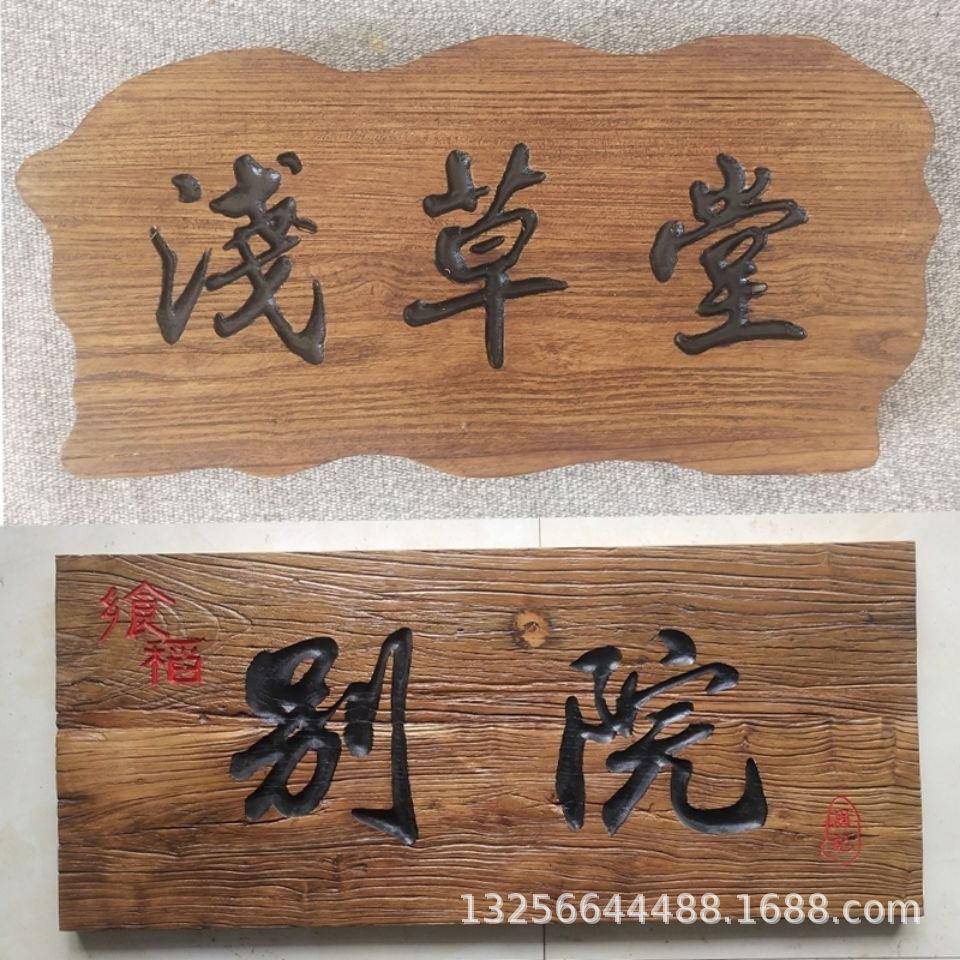 淺草堂
飨稻
别院
13256644488.1688.com